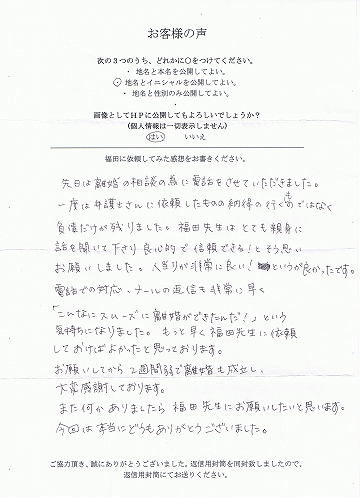 お客様の声
次の3つのうち、どれかに○をつけてください。
・ 地名と本名を公開してよい。
・ 地名とイニシャルを公開してよい。
・ 地名と性別のみ公開してよい。
画像としてHPに公開してもよろしいでしょうか？
(個人情報は一切表示しません)
はい　いいえ
福田に依頼してみた感想をお書きください。
先日は離婚の相談の為に電話をさせていただきました。
一度は弁護士さんに依頼したものの納得の行くものではなく
負債だけが残りました。福田先生はとても親身に
話を聞いて下さり良心的で信頼できる！とそう思い
お願いしました。人当りが非常に良い！というが良かったです。
電話での対応、メールの返信も非常に早く
「こんなにスムーズに離婚ができたんだ！」という
気持ちになりました。もっと早く福田先生に依頼
しておけばよかったと思っております。
お願いしてから2週間弱で離婚も成立し、
大変感謝しております。
また何かありましたら福田先生にお願いしたいと思います。
今回は本当にどうもありがとうございました。
ご協力頂き、誠にありがとうございました。返信用封筒を同封致しましたので、
返信用封筒にてお送りください。